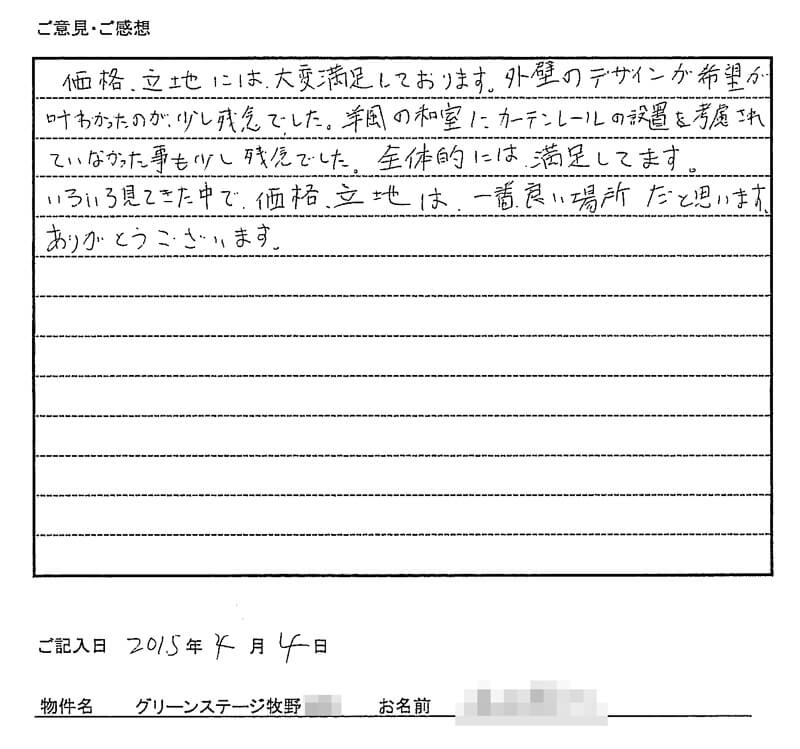 ご意見・ご感想
価格、立地には、大変満足しております。外壁のデザインが希望が
叶わかったのが、少し残念でした。洋風の和室に、カーテンレールの設置を考慮され
ていなかった事も少し残念でした。全体的には、満足してます。
いろいろ見てきた中で、価格、立地は、一番、良い場所だと思います。
ありがとうございます。
ご記入日 2015年4月4日
物件名 グリーンステージ牧野 お名前